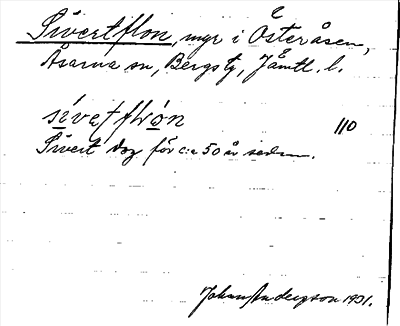 Sivertflon, myr i Österåsen,
Åsarne sn, Bergs tg, Jämtl. l.
sívetflòn 110
Sivert dog för c:a 50 år sedan.
Johan Andersson 1931.